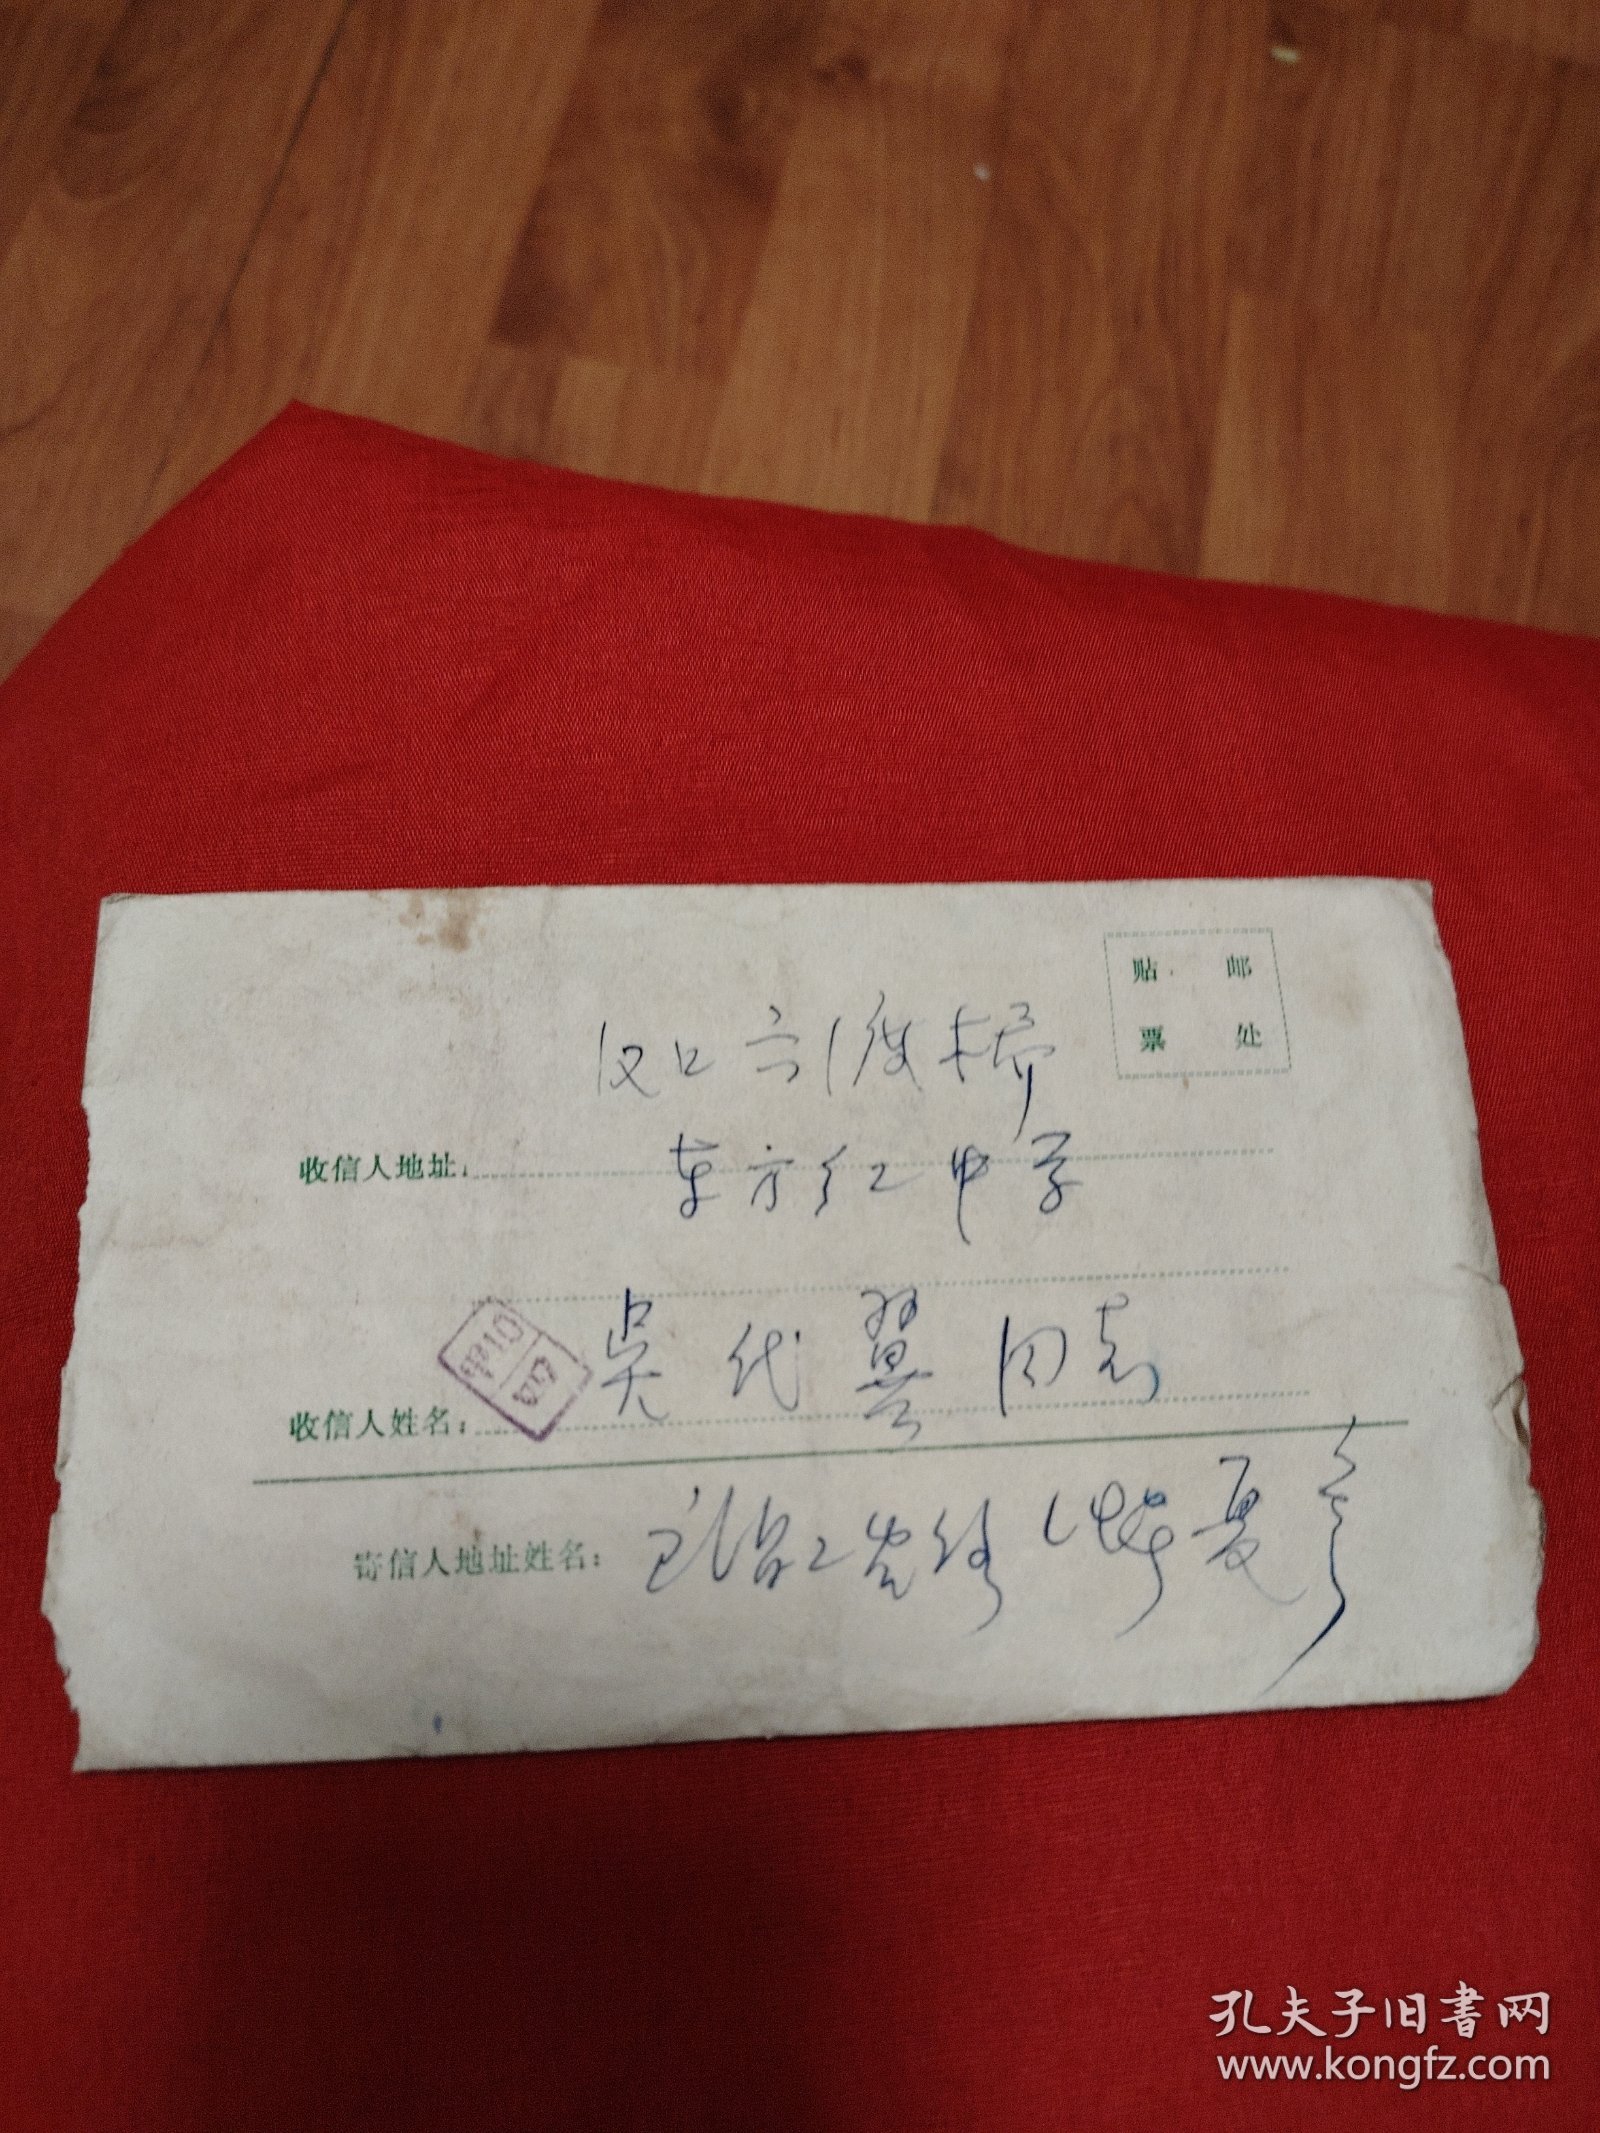 贴 邮
票 处
汉口六渡桥
收信人地址:
东方红中学
吴代翼同志
收信人姓名:
寄信人地址姓名:
孔夫子旧书网
www.kongfz.com